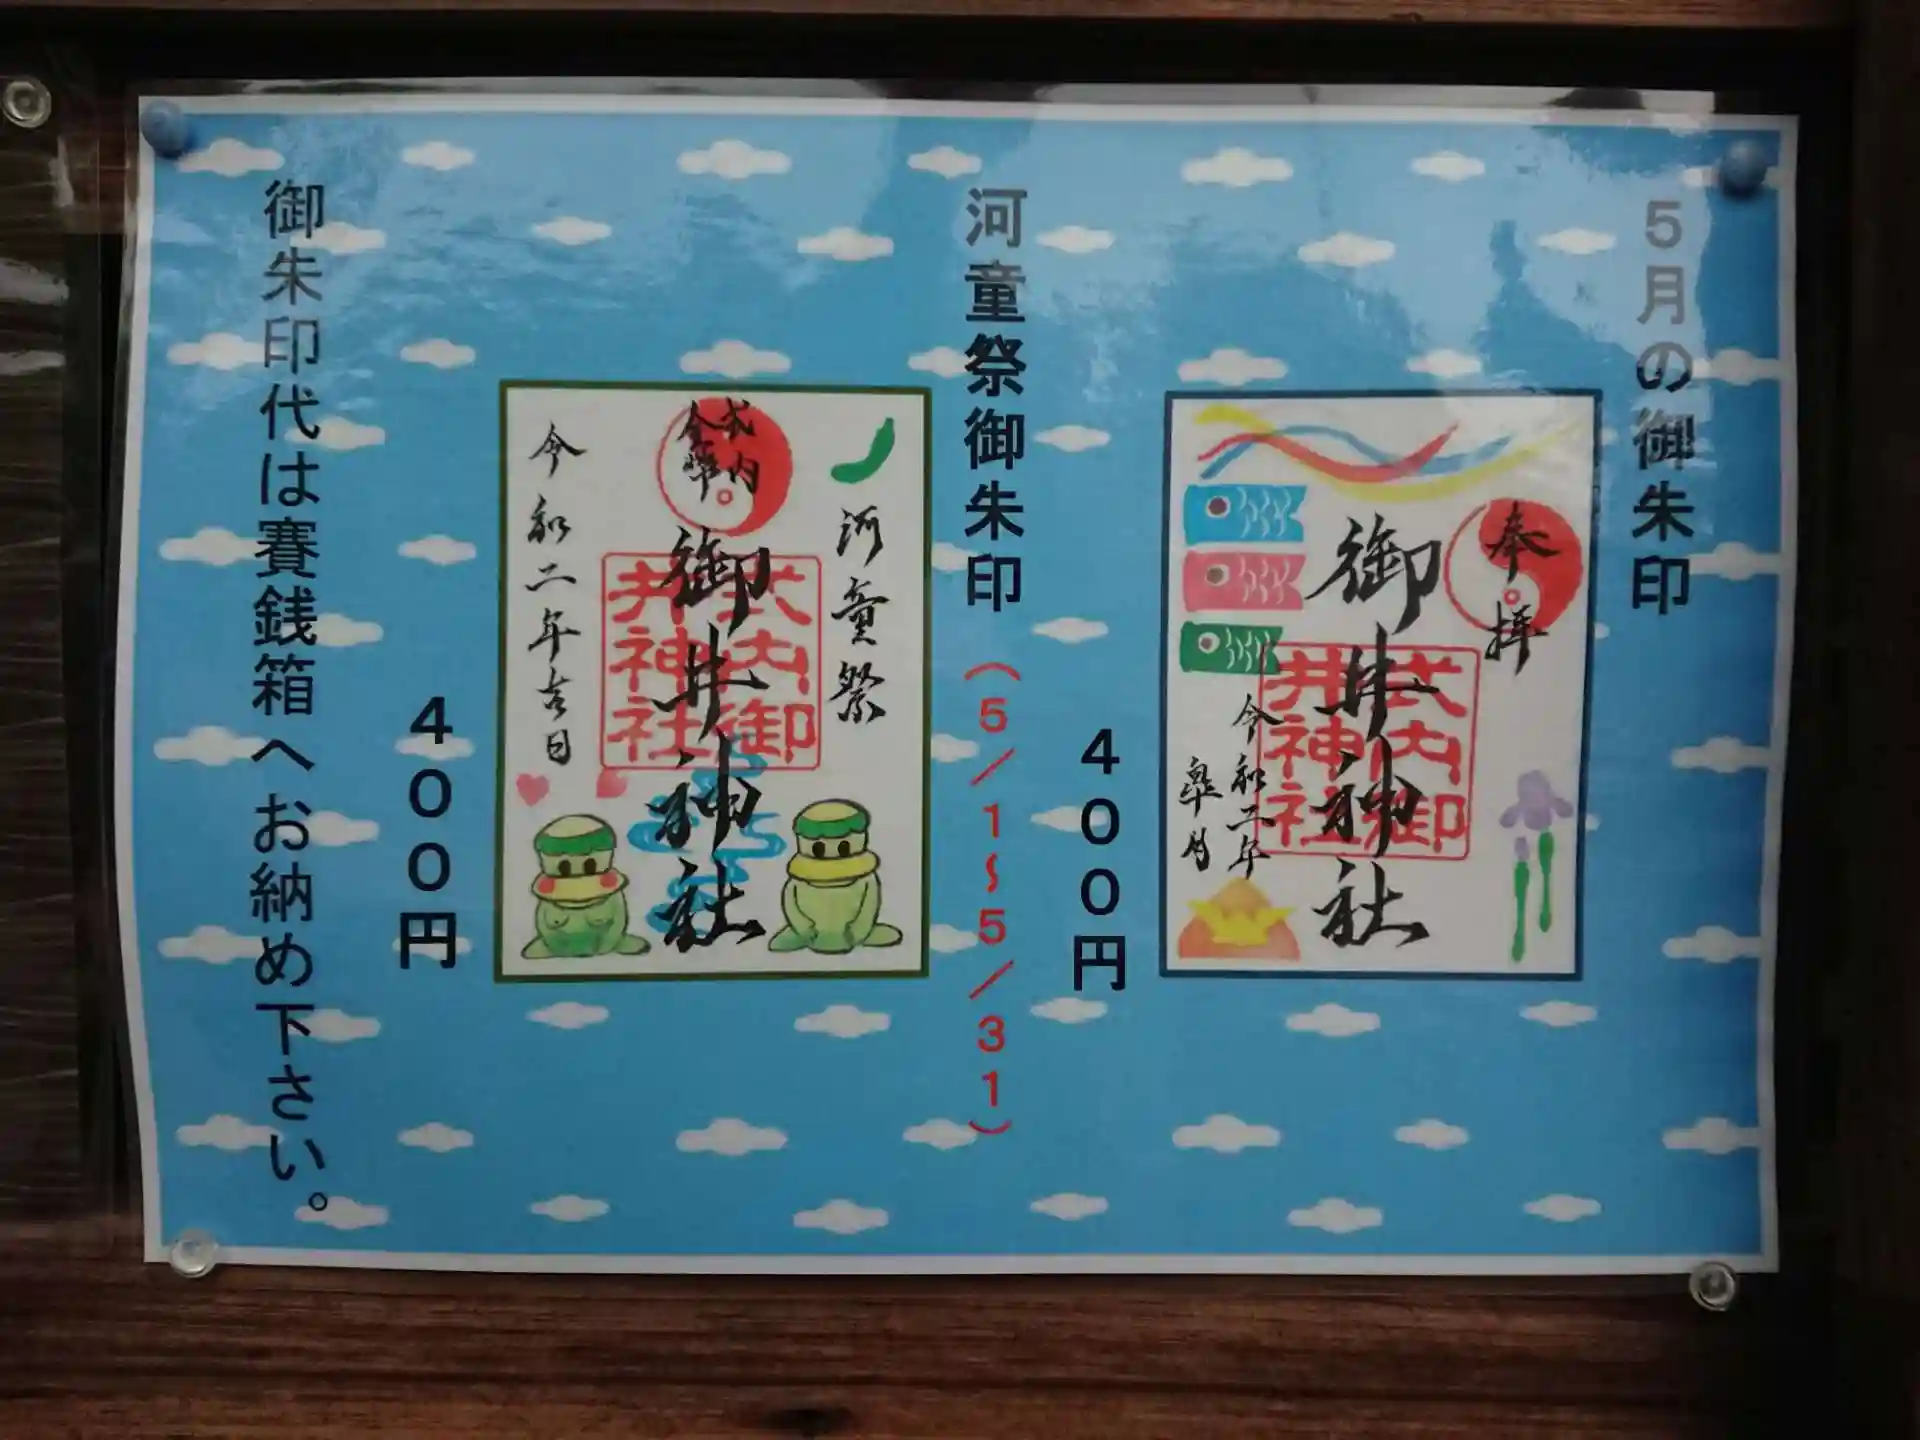 5月の御朱印
奉拝
御井神社
式内御
井神社
令和二年
皐月
400円
河童祭御朱印（5／1～5／31）
河童祭
式内
御井神社
式内御
井神社
令和二年吉日
400円
御朱印代は賽銭箱へお納め下さい。